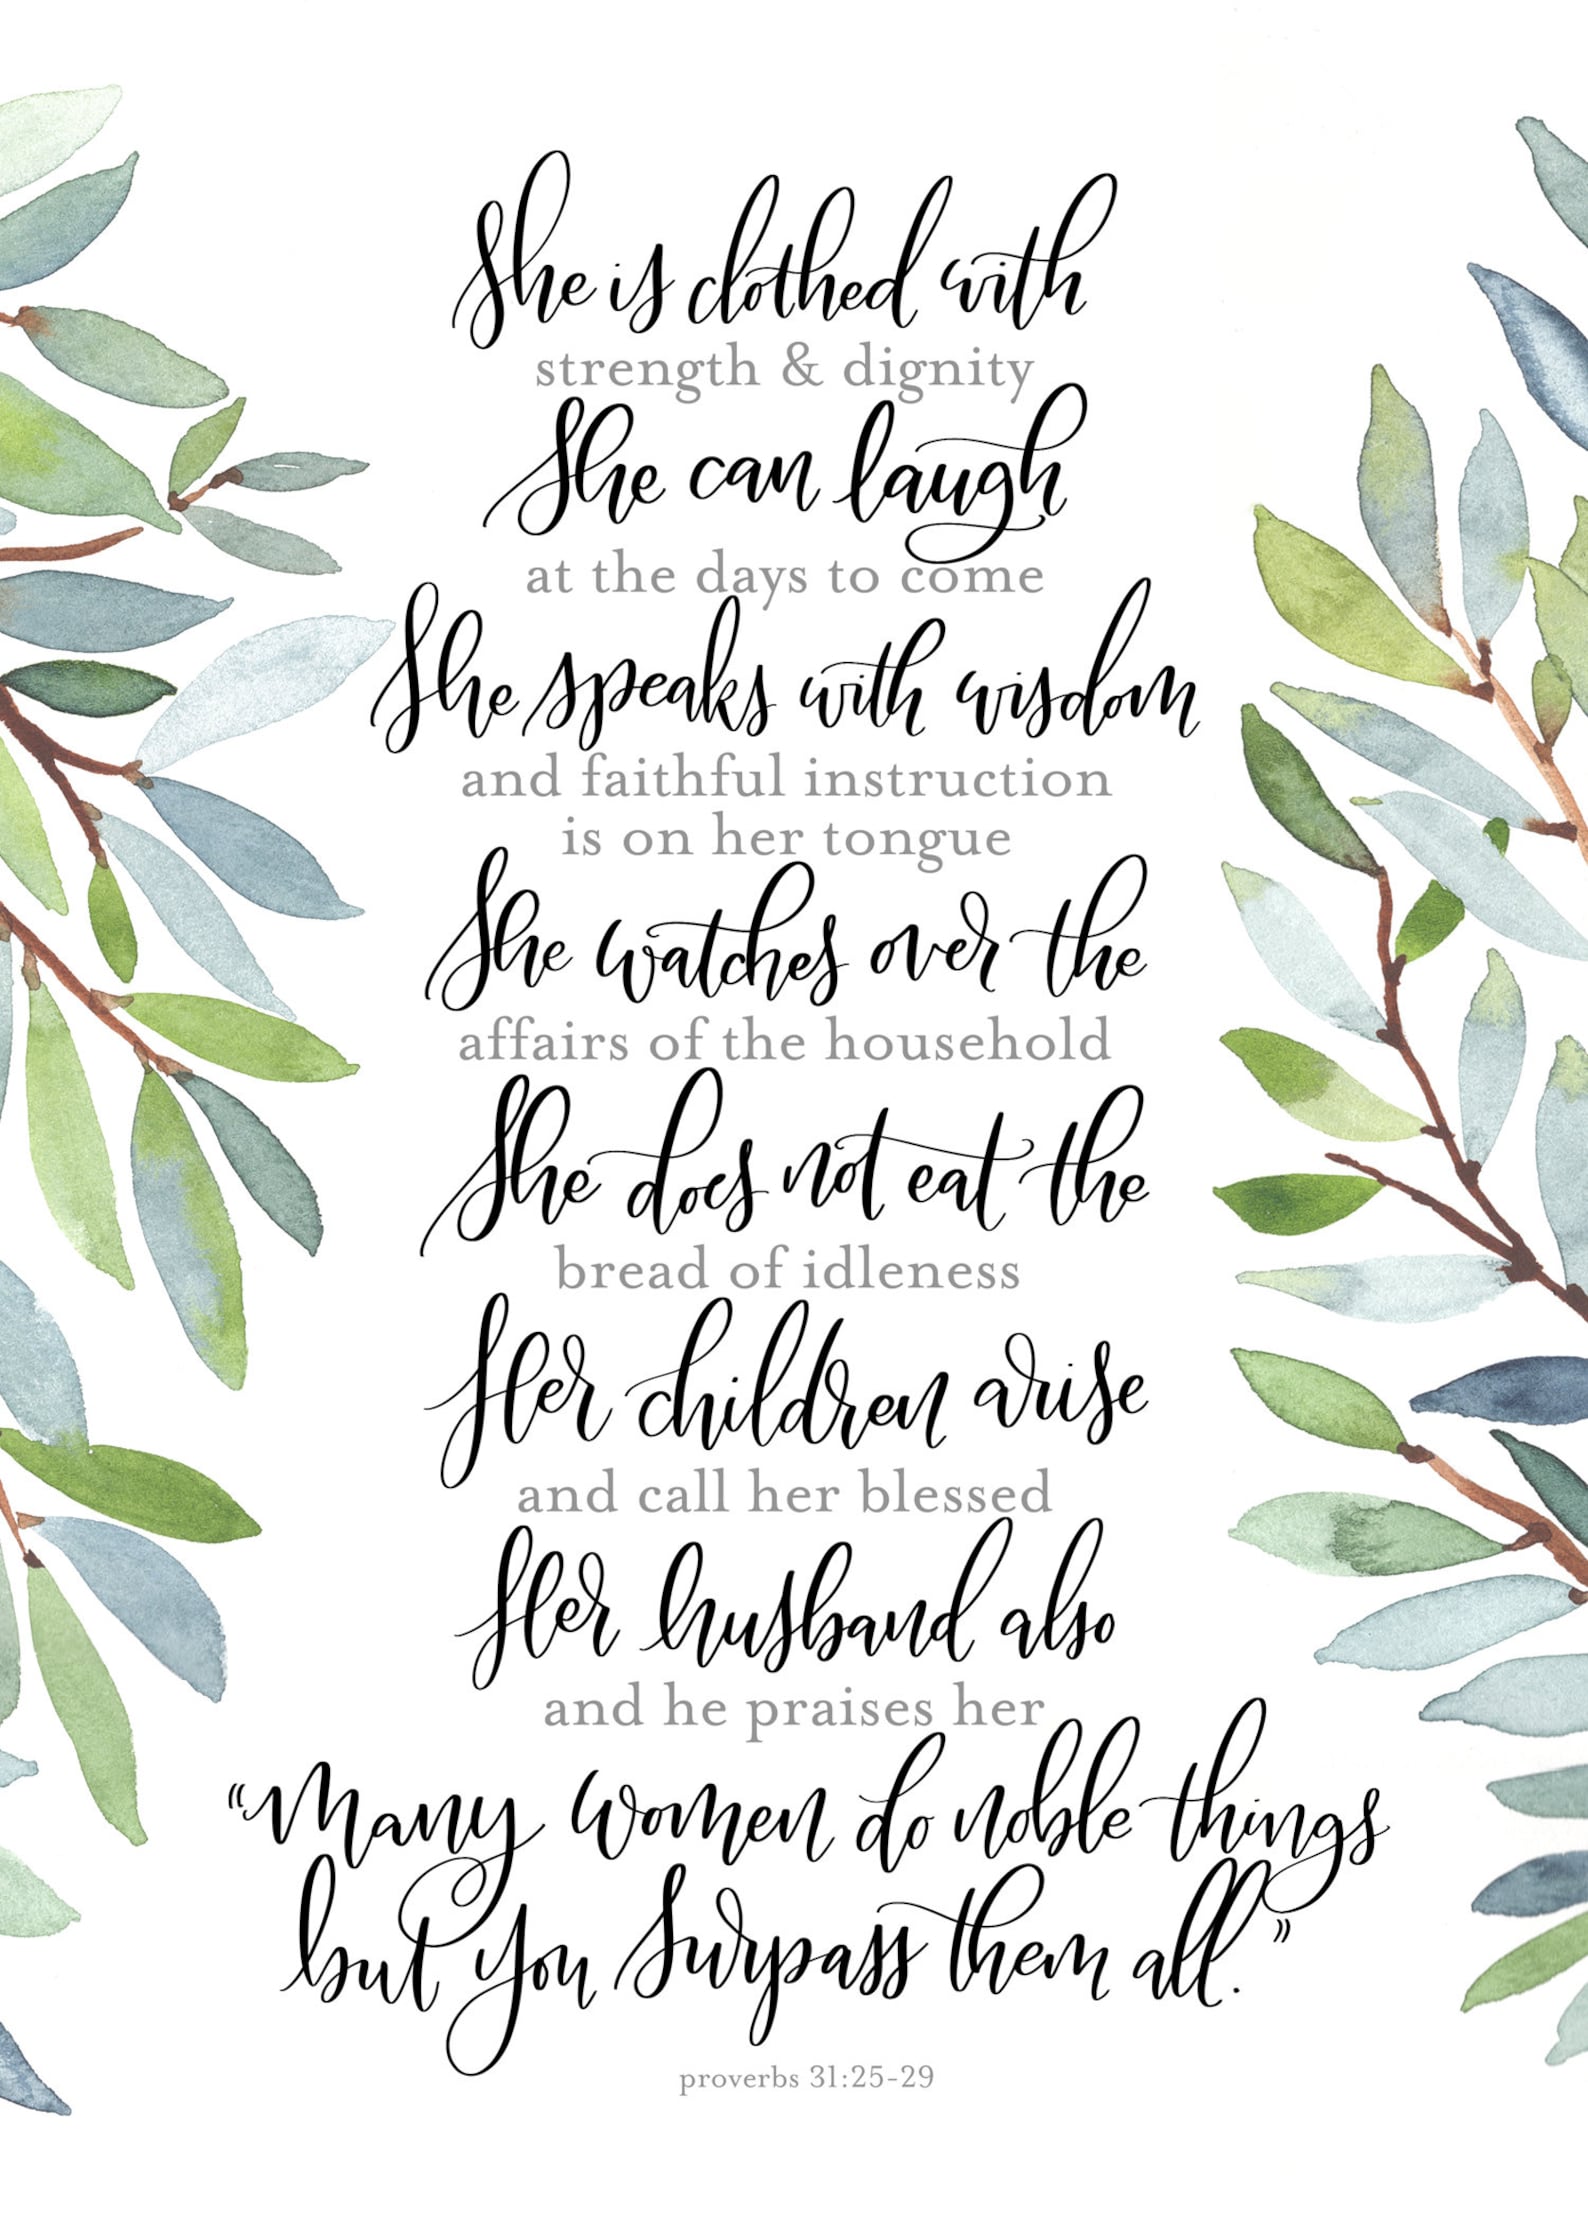 She is clothed with
strength & dignity
She can laugh
at the days to come
She speaks with wisdom
and faithful instruction
is on her tongue
She watches over the
affairs of the household
She does not eat the
bread of idleness
Her children arise
and call her blessed
Her husband also
and he praises her
“Many women do noble things
but you surpass them all.”
proverbs 31:25-29